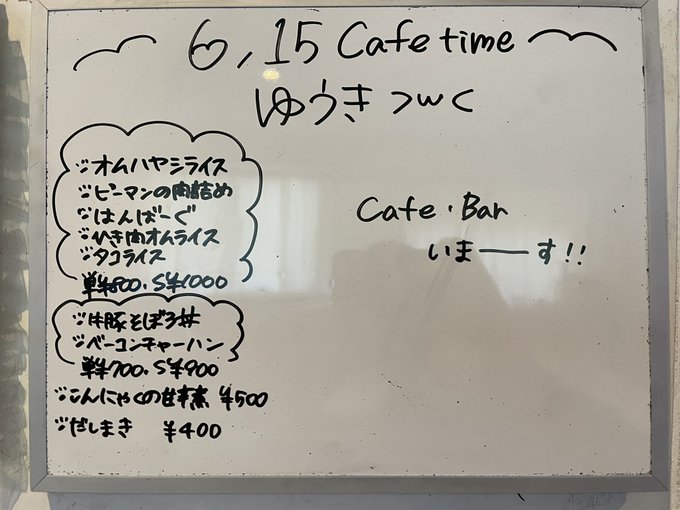 6,15 Cafe time
ゆうき つwく
オムハヤシライス
ピーマンの肉詰め
はんばーぐ
ひき肉オムライス
タコライス
単¥800.S¥1000
牛豚そぼろ丼
ベーコンチャーハン
単¥700.S¥900
こんにゃくの甘辛煮 ¥500
だしまき ¥400
Cafe・Bar
いまーーす!!